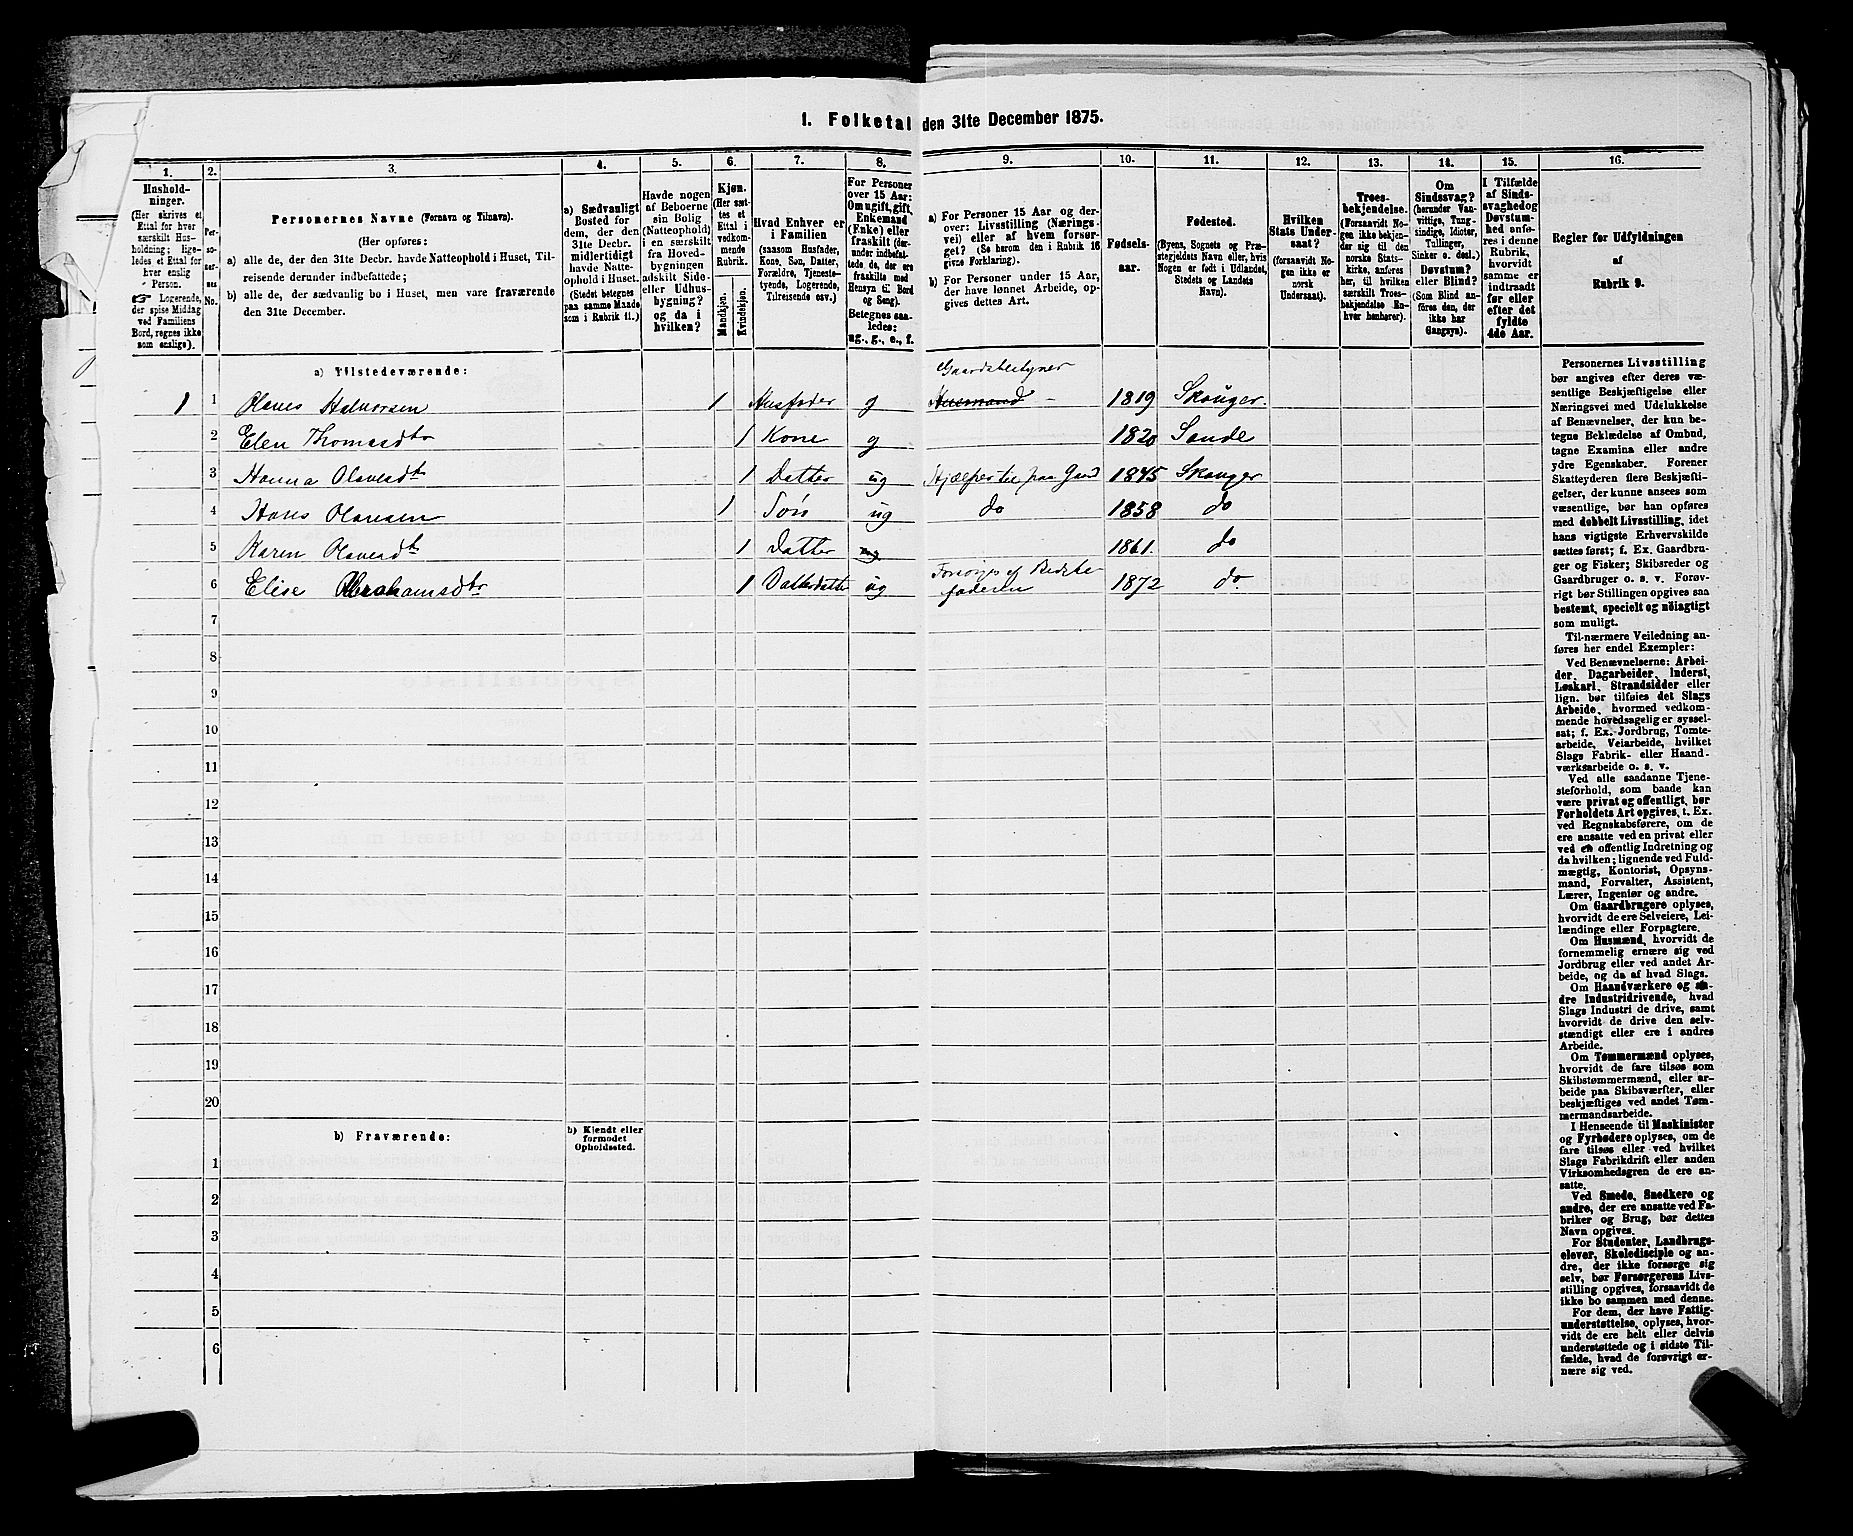 1. Folketal den 31te December 1875.
1. 2. 3. 4. 5. 6. 7. 8. 9. 10. 11. 12. 13. 14. 15. 16.
Husholdninger.
(Her skrives et Ettal for hver særskilt Husholdning; ligeledes et Ettal for hver enslig Person.
☞ Logerende, der spise Middag ved Familiens Bord, regnes ikke som enslige).
Personernes No.
Personernes Navne (Fornavn og Tilnavn).
(Her opføres:
a) alle de, der den 31te Decbr. havde Natteophold i Huset, Tilreisende derunder indbefattede;
b) alle de, der sædvanlig bo i Huset, men vare fraværende den 31te December.
a) Sædvanligt Bosted for dem, der den 31te Decbr. midlertidigt havde Natteophold i Huset.
(Stedet betegnes paa samme Maade som i Rubrik 11.)
Havde nogen af Beboerne sin Bolig (Natteophold) i en særskilt fra Hovedbygningen adskilt Side- eller Udhusbygning? og da i hvilken?
Kjøn.
(Her sættes et Ettal i vedkommende Rubrik.
Mandkjøn.
Kvindekjøn.
Hvad Enhver er i Familien
(saasom Husfader, Kone, Søn, Datter, Forældre, Tjenestetyende, Logerende, Tilreisende osv.)
For Personer over 15 Aar: Om ugift, gift, Enkemand (Enke) eller fraskilt (derunder indbefattede de, der ere fraskilte med Hensyn til Bord og Seng).
Betegnes saaledes:
ug., g., e., f.
a) For Personer 15 Aar og derover: Livsstilling (Næringsvei) eller af hvem forsørget? (Se herom den i Rubrik 16 givne Forklaring).
b) For Personer under 15 Aar, der have lønnet Arbeide, opgives dettes Art.
Fødselsaar.
Fødested.
(Byens, Sognets og Præstegjeldets Navn eller, hvis Nogen er født i Udlandet, Stedets og Landets Navn).
Hvilken Stats Undersaat?
(forsaavidt Nogen ikke er norsk Undersaat).
Troesbekjendelse.
(Forsaavidt Nogen ikke bekjender sig til den norske Statskirke, anføres her, til hvilken særskilt Troesbekjendelse Enhver henhører).
Om Sindssvag? (herunder Vanvittige, Idioter, Tullinger, Sinker o. desl.). Døvstum? eller Blind? (Som Blind anføres den, der ikke har Gangsyn).
I Tilfælde af Sindssvaghed og Døvstumhed anføres i denne Rubrik, hvorvidt samme er indtraadt før eller efter det fyldte 4de Aar.
Regler for Udfyldningen
af
Rubrik 9.
a) Tilstedeværende:
Gaardsbestyrer
1 1 Olaves Halvorsen 1 Husfader g Husmand - 1819 Skouger.
2 Elen Thomasdtr 1 Kone g 1820 Sande
3 Hanna Olavesdt 1 Datter ug Hjælper til paa Gaard 1845 Skouger
4 Hans Olavesen 1 Søn ug do 1858 do
5 Karen Olavesdt 1 Datter ug 1861. do
6 Elise Abrahamsdtr 1 Datterdatter ug Forsørges af Bedstefaderen 1872 do.
7
8
9
10
11
12
13
14
15
16
17
18
19
20
b) Fraværende:
b) Kjendt eller formodet Opholdssted.
1
2
3
4
5
6
Personernes Livsstilling
bør angives efter deres væsentlige Beskjæftigelse eller
Næringsvei med Udelukkelse
af Benævnelser, der kun betegne Beklædelse af Ombud,
tagne Examina eller andre
ydre Egenskaber. Forener
Skatteyderen flere Beskjæftigelser, der kunne ansees som
væsentlige, bør han opføres
med dobbelt Livsstilling, idet
hans vigtigste Erhvervskilde
sættes først; f. Ex. Gaardbruger og Fisker; Skibsreder og
Gaardbruger o. s. v. Forøvrigt bør Stillingen opgives saa
bestemt, specielt og nøiagtigt
som muligt.
Til nærmere Veiledning anføres her endel Exempler:
Ved Benævnelserne: Arbeider, Dagarbeider, Inderst,
Løskarl, Strandsidder eller
lign. bør tilføies det Slags
Arbeide, hvormed vedkommende hovedsagelig er sysselsat; f. Ex. Jordbrug, Tomtearbeide, Veiarbeide, hvilket
Slags Fabrik- eller Haandværksarbeide o. s. v.
Ved alle saadanne Tjenesteforhold, som baade kan
være privat og offentligt, bør
Forholdets Art opgives, t. Ex.
ved Regnskabsførere, om de
ere ansatte ved en privat eller
ved en offentlig Indretning og
da hvilken; lignende ved Fuldmægtig, Kontorist, Opsynsmand, Forvalter, Assistent,
Lærer, Ingeniør og andre.
Om Gaardbrugere oplyses,
hvorvidt de ere Selveiere, Leilændinge eller Forpagtere.
Om Husmænd, hvorvidt de
fornemmelig ernære sig ved
Jordbrug eller ved andet Arbeide, og da af hvad Slags.
Om Haandværkere og andre Industridrivende, hvad
Slags Industri de drive, samt
hvorvidt de drive den selvstændigt eller ere i andres
Arbeide.
Om Tømmermænd oplyses,
hvorvidt de fare tilsøs som
Skibstømmermænd, eller arbeide paa Skibsværfter, eller
beskjæftiges ved andet Tømmermandsarbeide.
I Henseende til Maskinister
og Fyrbødere oplyses, om de
fare tilsøs eller ved hvilket
Slags Fabrikdrift eller anden
Virksomhedsgren de ere ansatte.
Ved Smede, Snedkere og
andre, der ere ansatte ved Fabriker og Brug, bør dettes
Navn opgives.
For Studenter, Landbrugselever, Skoledisciple og andre, der ikke forsørge sig
selv, bør Forsørgerens Livsstilling opgives, forsaavidt de
ikke bo sammen med denne.
For dem, der have Fattigunderstøttelse, oplyses, hvorvidt de ere helt eller delvis
understøttede og i sidste Tilfælde, hvad de forøvrigt ernære sig ved.